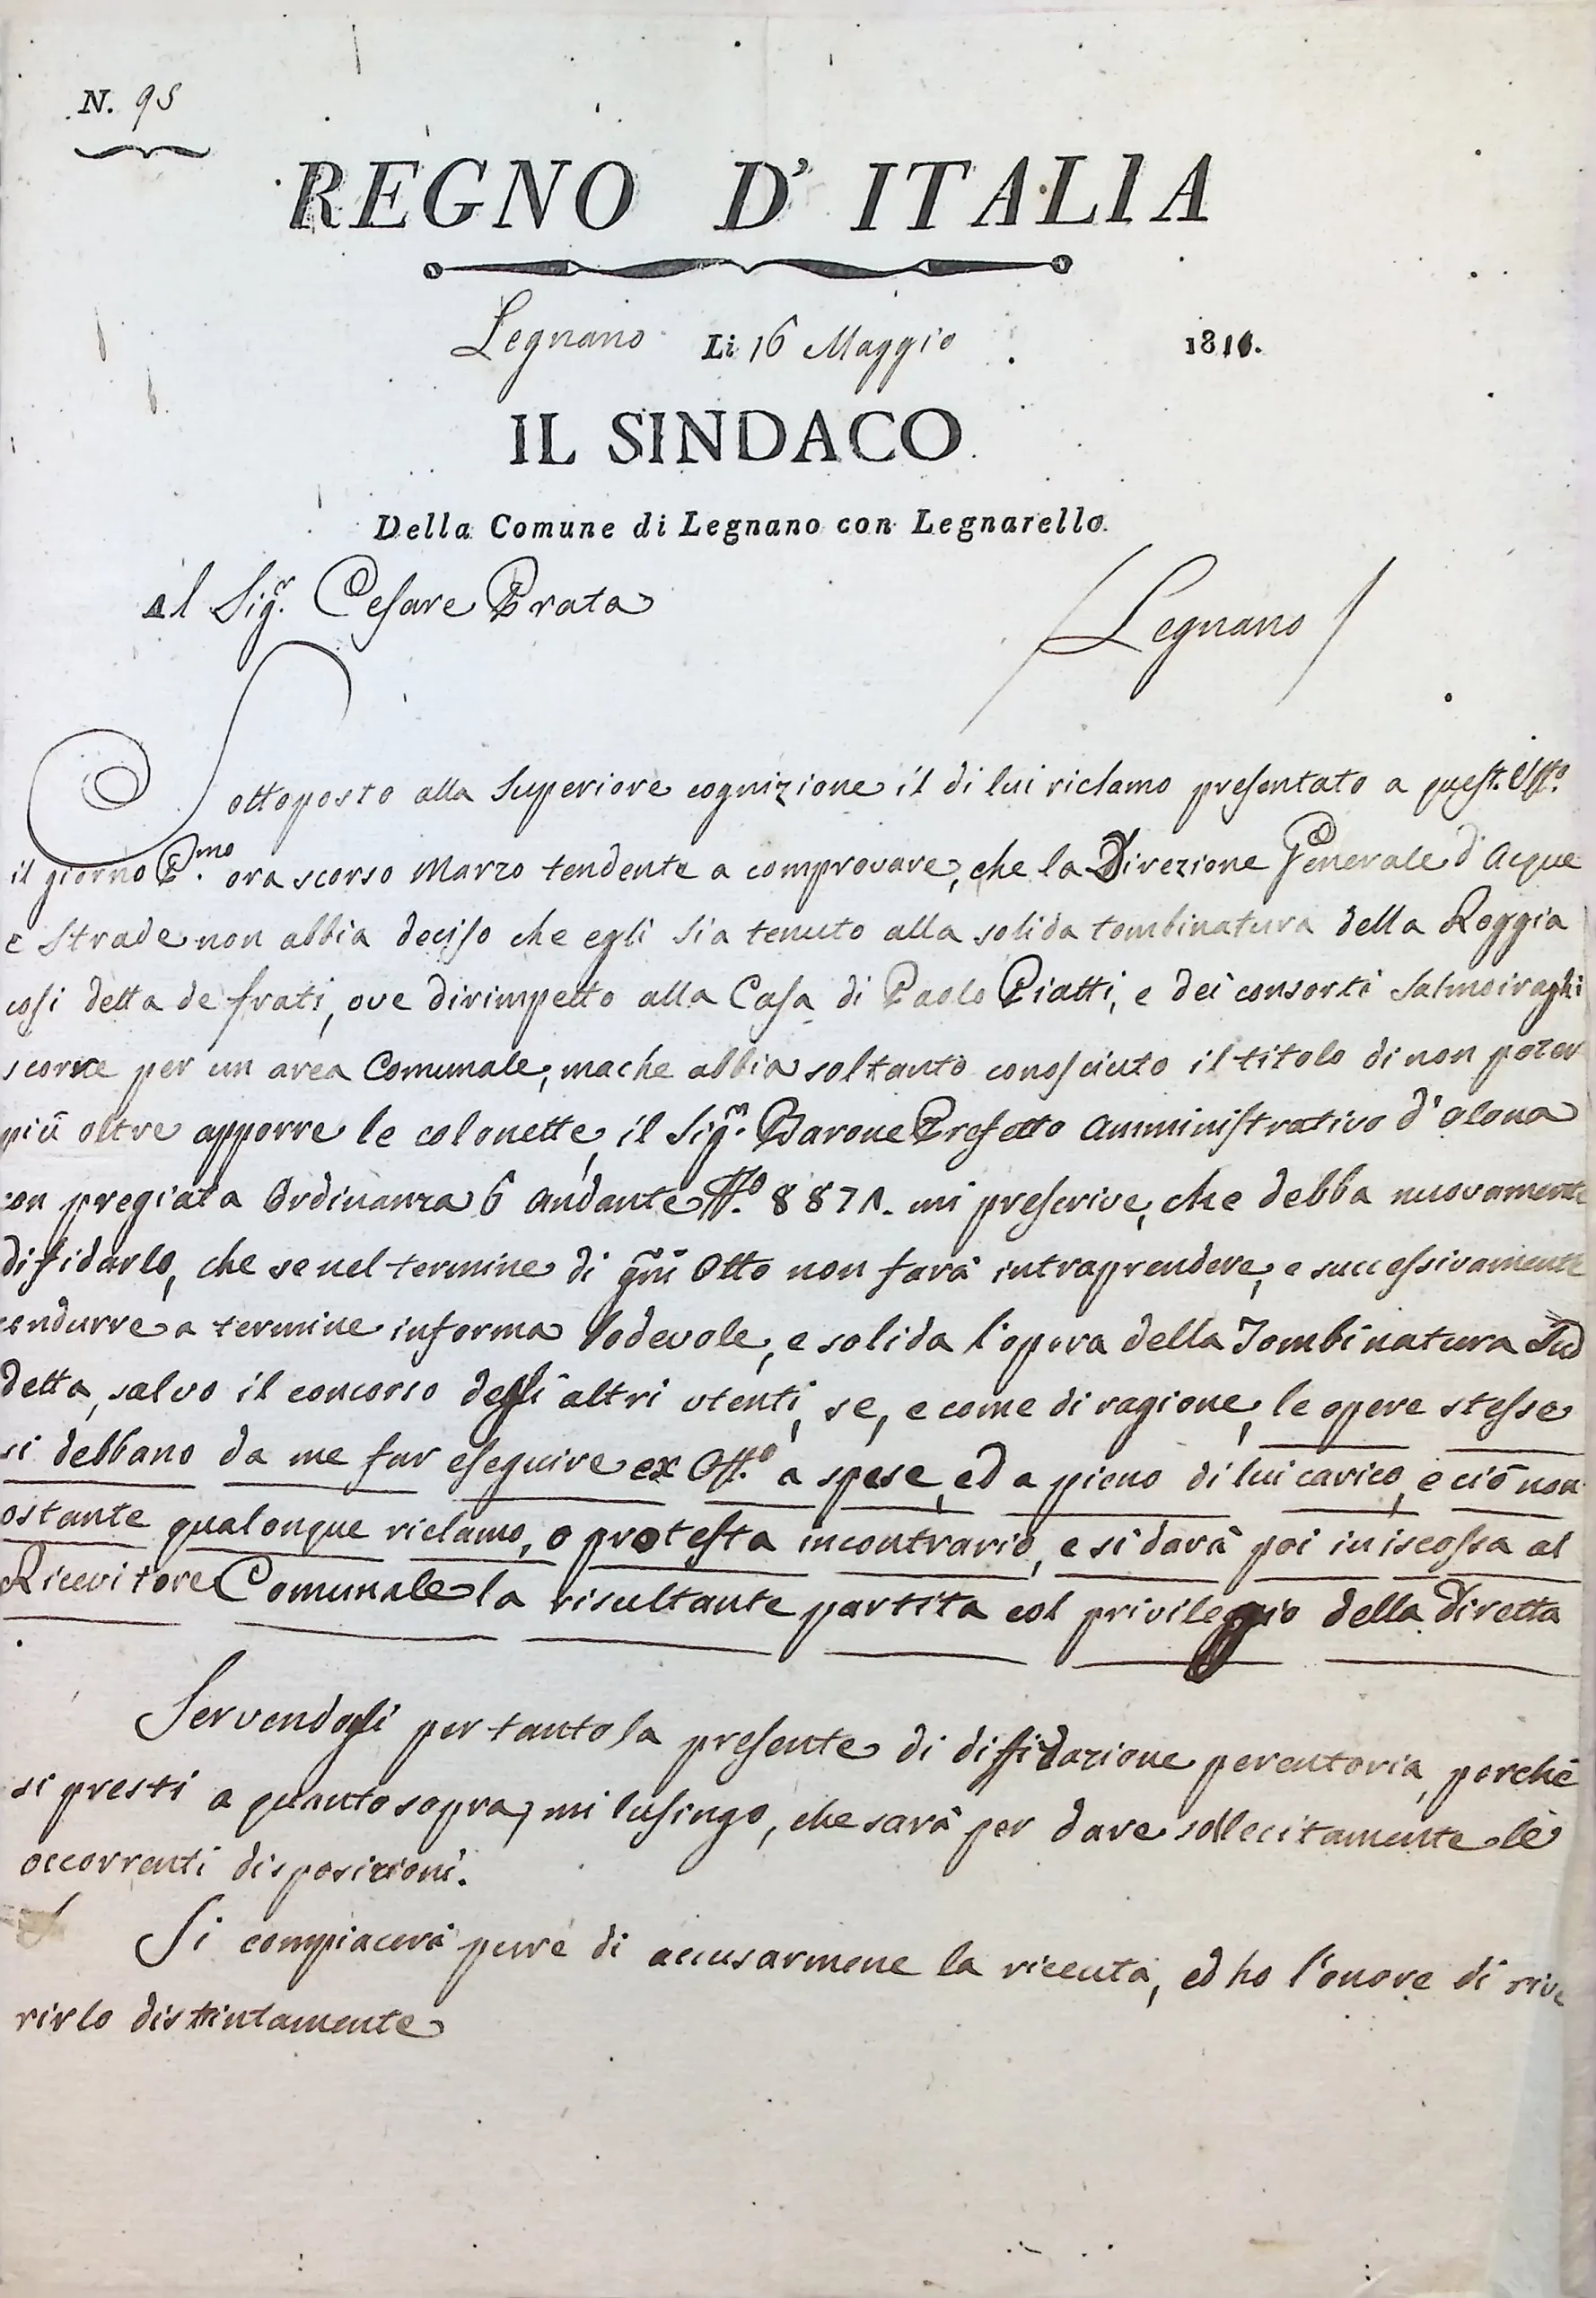 N. 95
REGNO D' ITALIA
Legnano Li 16 Maggio 1810.
IL SINDACO
Della Comune di Legnano con Legnarello.
Al Sig.r Cesare Prata
Legnano
Sottoposto alla Superiore cognizione il di lui riclamo presentato a quest. Uff.o
il giorno P.mo ora scorso Marzo tendente a comprovare, che la Direzione Generale d'Acque
e Strade non abbia deciso che egli sia tenuto alla solida tombinatura della Roggia
cosi detta de frati, ove dirimpetto alla Casa di Paolo Piatti, e dei consorti Salmoiraghi
scorre per un area Comunale, ma che abbia soltanto conosciuto il titolo di non poter
più oltre apporre le colonette, il Sig.r Barone Prefetto Amministrativo d'Olona
con pregiata Ordinanza 6 andante N.o 8871. mi prescrive, che debba nuovamente
diffidarlo, che se nel termine di gni Otto non farà intraprendere, e successivamente
condurre a termine in forma lodevole, e solida l'opera della Tombinatura Sud
detta, salvo il concorso degli altri utenti, se, e come di ragione, le opere stesse
si debbano da me far eseguire ex Off.o a spese, ed a pieno di lui carico, e ciò non
ostante qualonque riclamo, o protesta in contrario, e si darà poi in iscossa al
Ricevitore Comunale la risultante partita col privileggio della Diretta
Servendogli per tanto la presente di diffidazione perentoria, perchè
si presti a quanto sopra, mi lusingo, che sarà per dare sollecitamente le
occorrenti disposizioni.
Si compiacerà pure di accusarmene la riceuta, ed ho l'onore di rive
rirlo distintamente